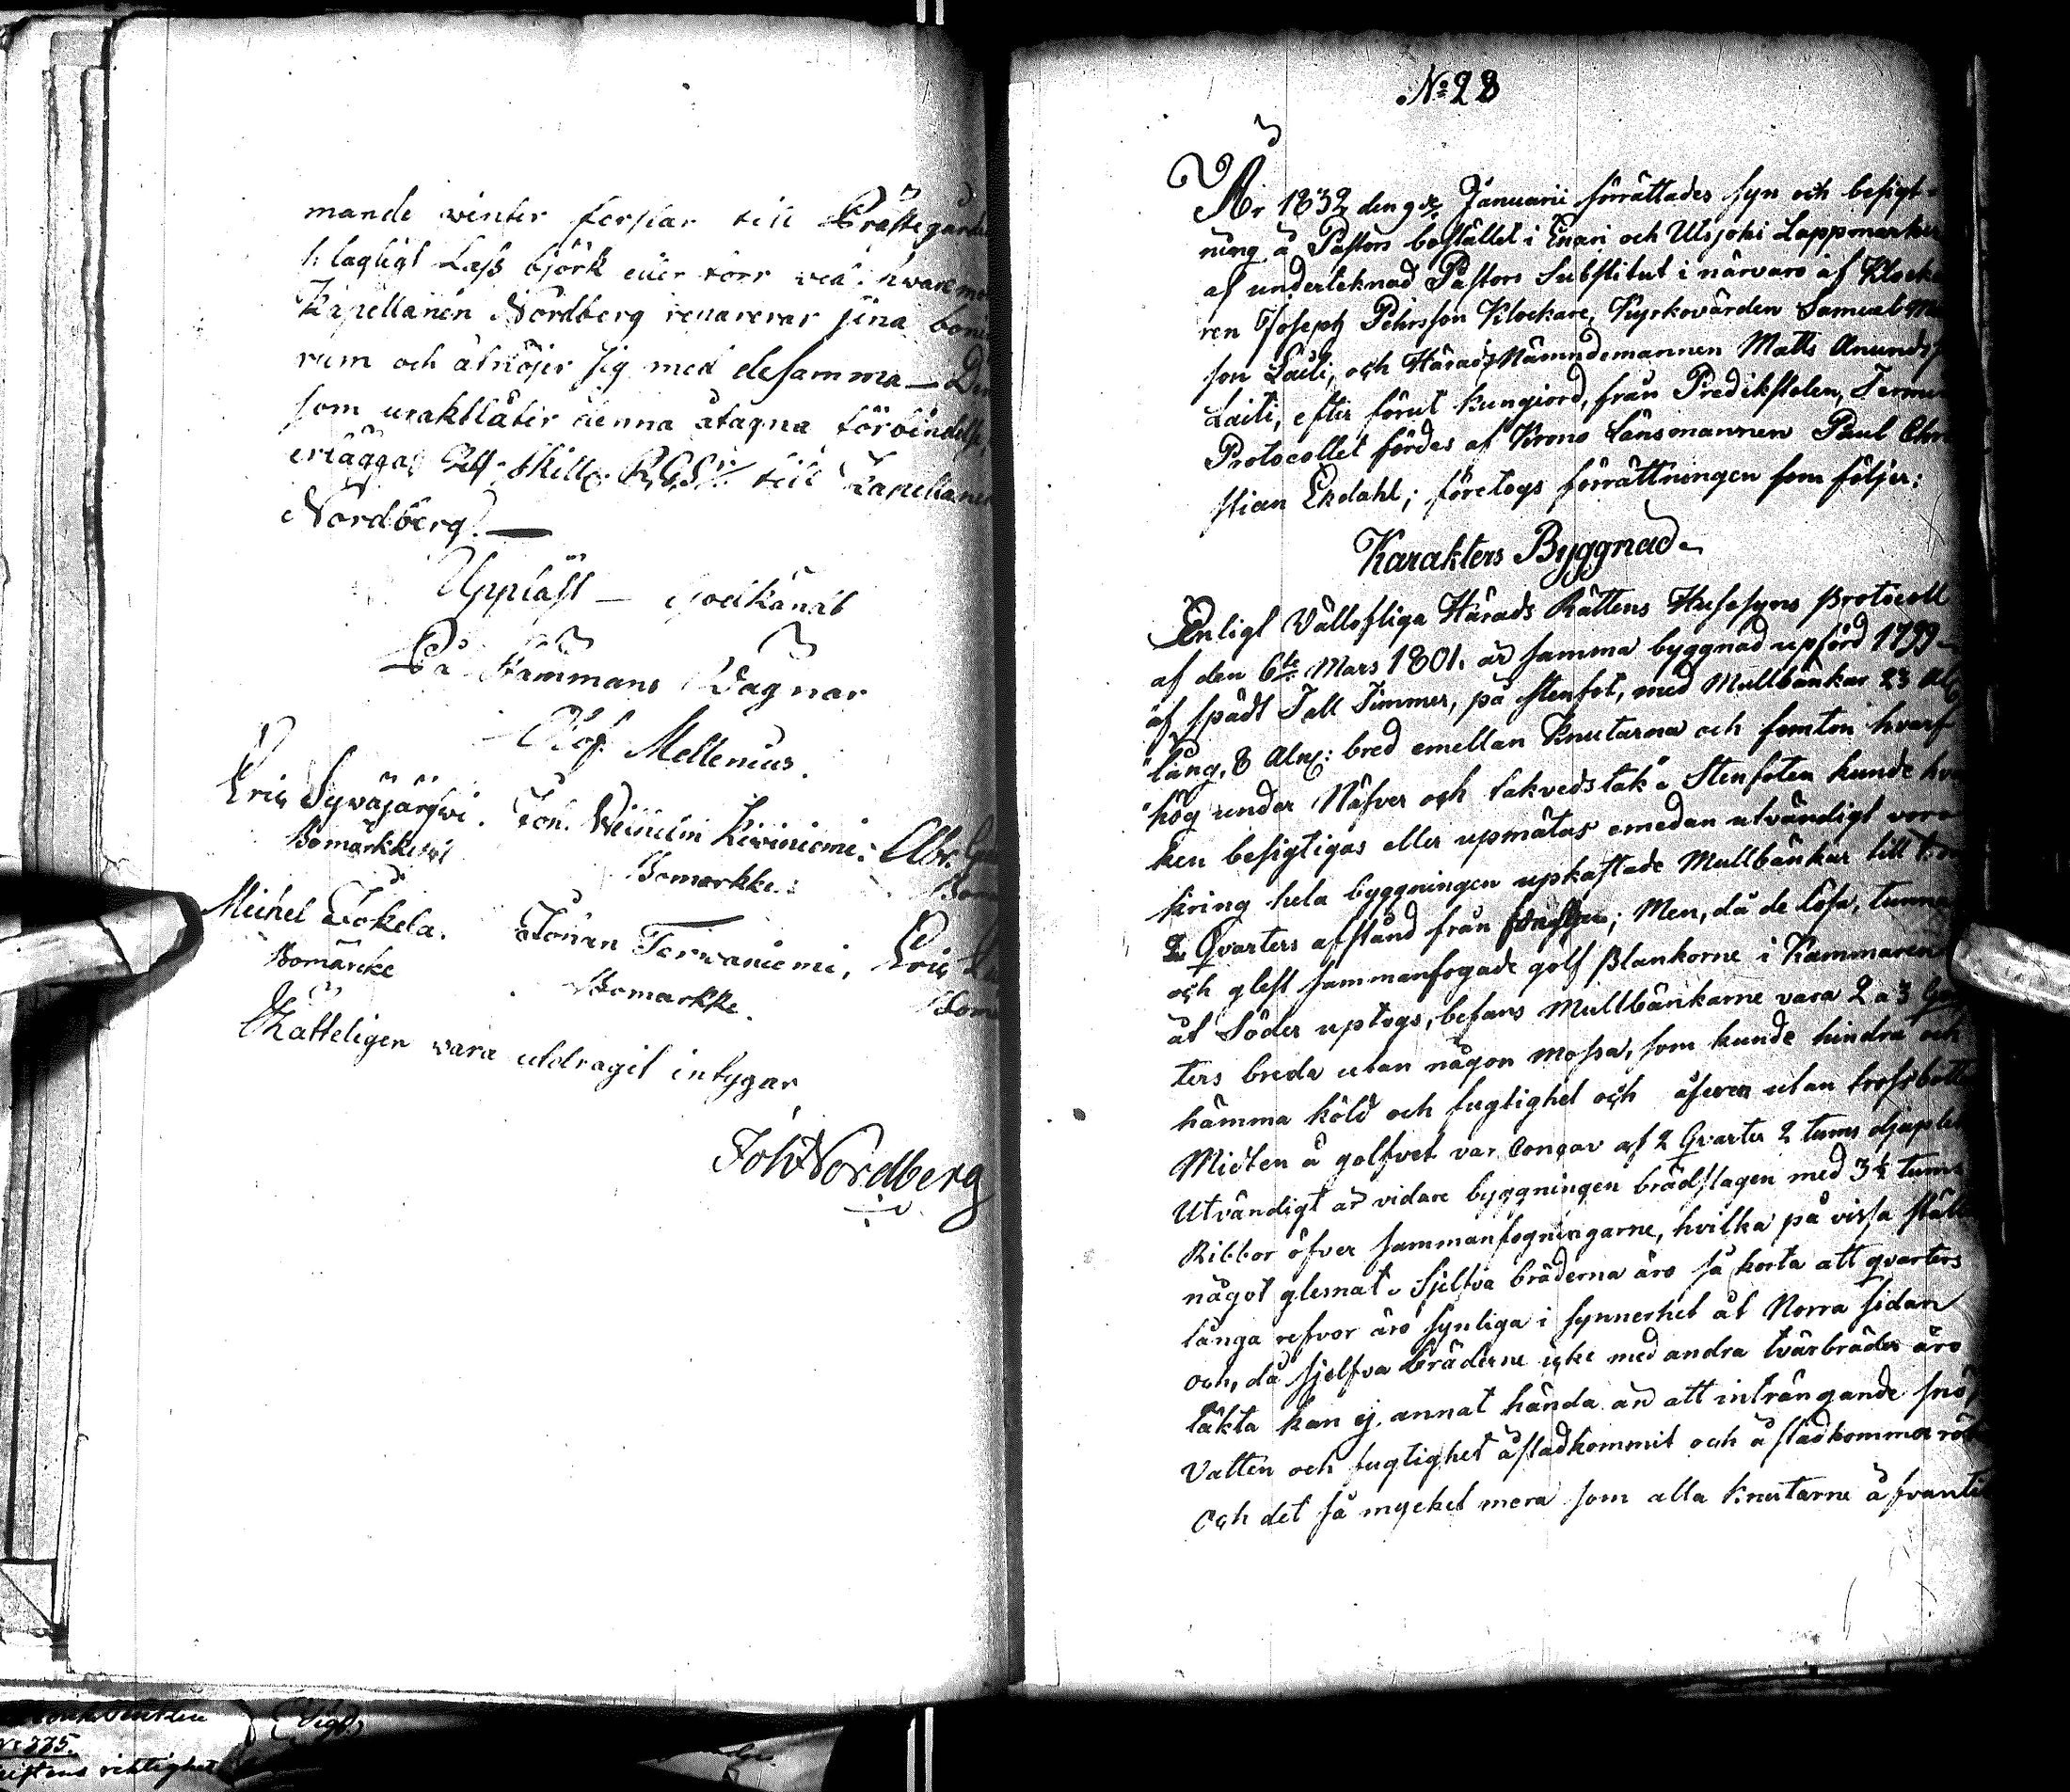 mande winter forslar till Prästegården
1: lagligt Lass björk eller torr ved. hvaremot
Kapellanen Nordberg renarerar sina bonings
rum och åtnöjer sig med desamma — Den
som uraktlåter denna åtagna förbindelse,
erlägga skill. R.G.S. till Kapellanen
Nordberg. —
Uppläst — Godkändt
På Stämmans Vägnar
Olof Mellenius.
Eric Syväjärwi. Joh. Wilhelm Kiviniemi. Abr.
Bomärkke Bomarkke.
Michel Jokela. Johan Terwaniemi, Eric
Bomärcke Bomarkke.
Rätteligen vara utdragit intygar
Joh Nordberg
No 28
År 1832 den 9de Januarii förrättades syn och besigt-
ning å Pastors bostället i Enari och Utsjoki Lappmarker
af underteknad Pastors Substitut i närvaro af Klocka
ren Joseph Pehrsson Klockare, Kyrkovärden Samuel
son Laiti, och Härads Nämndemannen Matts Anunds
Laiti, efter förut kungiord, från Predikstolen, Termin
Protocollet fördes af Krono Länsmannen Paul Chri
stian Ekdahl; företogs förrättningen som följer:
Karakters Byggnad
Enligt Vällofliga Härads Rättens Husesyns Protocoll
af den 6te Mars 1801. är samma byggnad upförd 1799
"af spädt Tall Timmer, på stenfot, med Mullbänkar 23 Aln
"lång, 8 Aln: bred emellan Knutarna och femton hvarf
"hög under Näfver och takvedstak" Stenfoten kunde hvar
ken besigtigas eller upmätas emedan utvändigt voro
kring hela byggningen upkastade Mullbänkar till
2 Qvarters afstånd från ; Men, då de lösa, tunna
och glest sammanfogade golf Plankorne i Kammaren
åt Söder uptogs, befans Mullbänkarne vara 2 a 3 Qvar
ters breda utan någon mossa, som kunde hindra och
hämma köld och fugtighet och äfven utan trossbotten
Midten å golfvet var Concav af 2 Qvarter 2 tums djuplek
Utvändigt är vidare byggningen brädslagen med 3½ tums
Ribbor öfver sammanfogningarne, hvilka på vissa ställen
något glesnat. Sjelfva bräderna äro så korta att qvarters
långa refvor äro synliga i synnerhet åt Norra sidan
och, då sjelfva bräderne icke med andra tvärbräder äro
täkta kan ej annat hända än att inträngande snö,
Vatten och fugtighet åstadkommit och åstadkommer röta
Och det så mycket mera som alla Knutarne å framtil